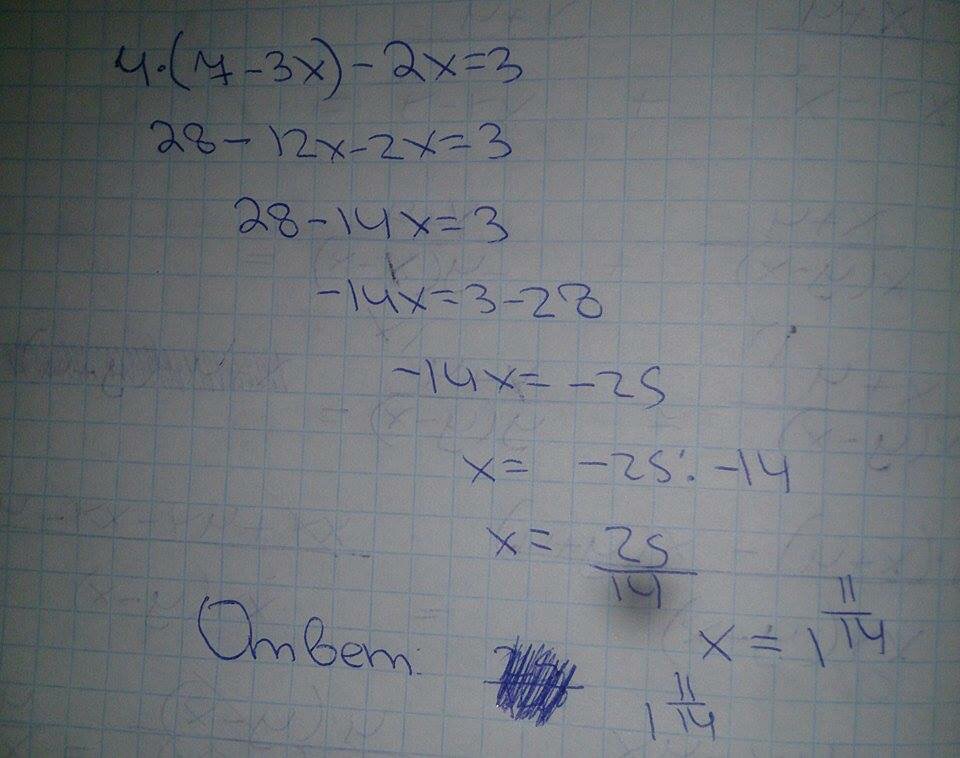 4·(7-3x)-2x=3
28-12x-2x=3
28-14x=3
-14x=3-28
-14x=-25
x= -25:-14
x= 25/14
x=1 11/14
Ответ: 1 11/14